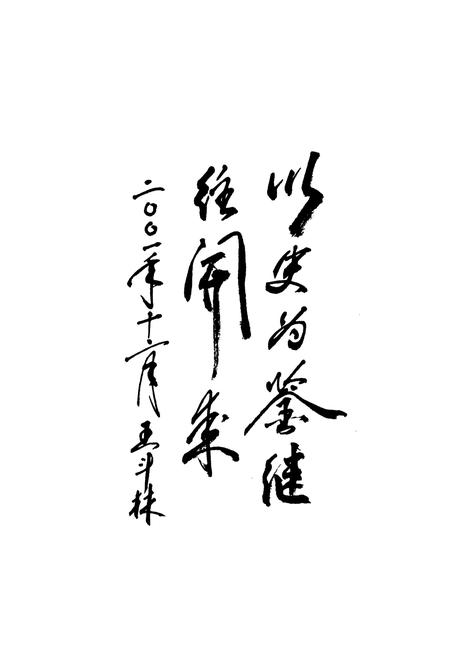 以史为鉴继
往开来
二〇〇一年十二月 王斗林